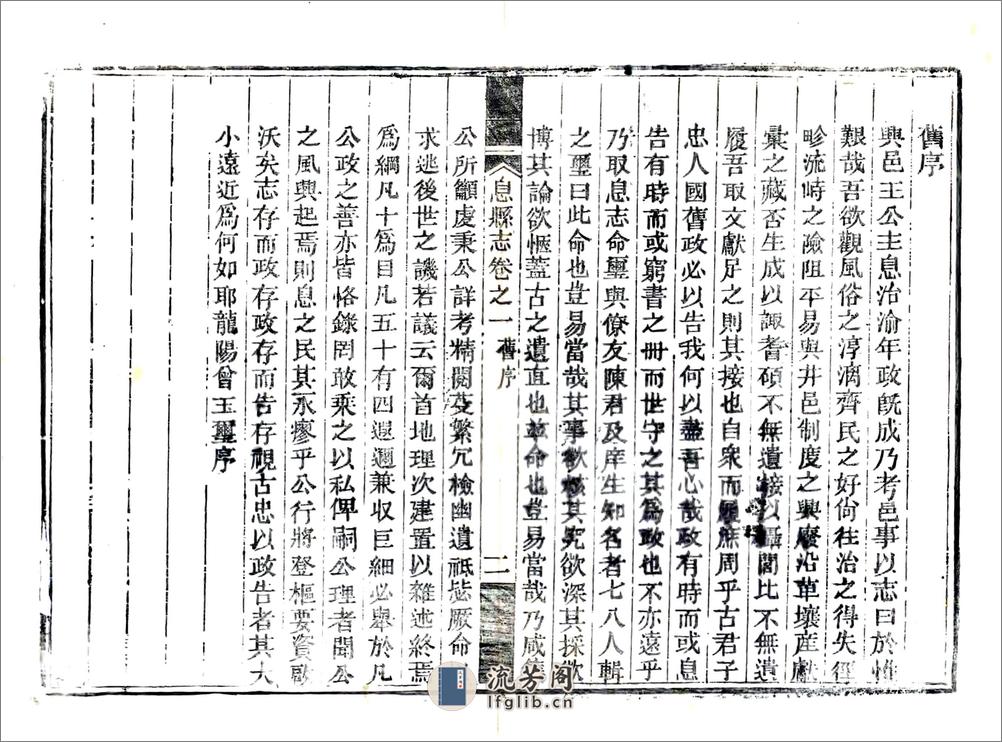 舊序
興邑王公主息治渝年政旣成乃考邑事以志曰於惟
艱哉吾欲觀風俗之淳漓齊民之好尙往治之得失徑
畛流峙之險阻平易與井邑制度之興廢沿革壤産獻
彙之藏否生成以諏耆碩不無遺接以聶聞比不無遺
履吾取文獻足之則其接也自衆而履庶周乎古君子
忠人國舊政必以告我何以盡吾心哉政有時而或息
告有時而或窮書之冊而世守之其爲政也不亦遠乎
乃取息志命璽與僚友陳君及庠生知名者七八人輯
之璽曰此命也豈易當哉其事欲核其究欲深其採欲
博其論欲愜蓋古之遺直也茲命也豈易當哉乃咸
息縣志卷之一 舊序 二
公所籲虔秉公詳考精閱芟繁冗檢幽遺祗愆厥命
求逃後世之譏若議云爾首地理次建置以雜述終焉
爲綱凡十爲目凡五十有四遐邇兼収巨細必舉於凡
公政之善亦皆恪錄罔敢乘之以私俾嗣公理者聞公
之風興起焉則息之民其永瘳乎公行將登樞要資啟
沃矣志存而政存政存而告存視古忠以政告者其大
小遠近爲何如耶龍陽曾玉璽序
流芳閣
lfglib.cn